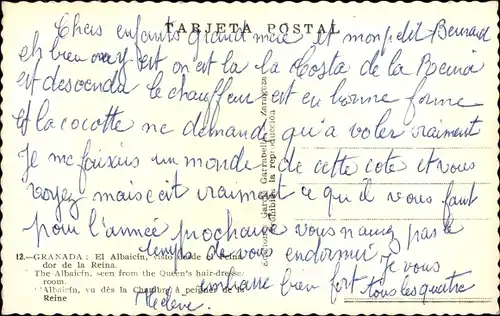 TARJETA POSTAL
Chers enfants grand mère et mon petit Bernard
eh bien ça y est on est la la Costa de la Reina
est descendu le chauffeur est en bonne forme
et la cocotte ne demande qu'a voler vraiment
Je me faisais un monde de cette cote et vous
voyez mais c'est vraiment ce qu'il vous faut
pour l'année prochaine vous n'aurez pas le
temps de vous endormir Je vous
embrasse bien fort tous les quatre
Hélène.
12.—GRANADA: El Albaicín, visto desde el Peina-
dor de la Reina.
The Albaicín, seen from the Queen's hair-dress-
room.
L'Albaicin, vu dès la Chambre à peigner de la
Reine
Ediciones García Garrabella Zaragoza
Prohibida la reproducción